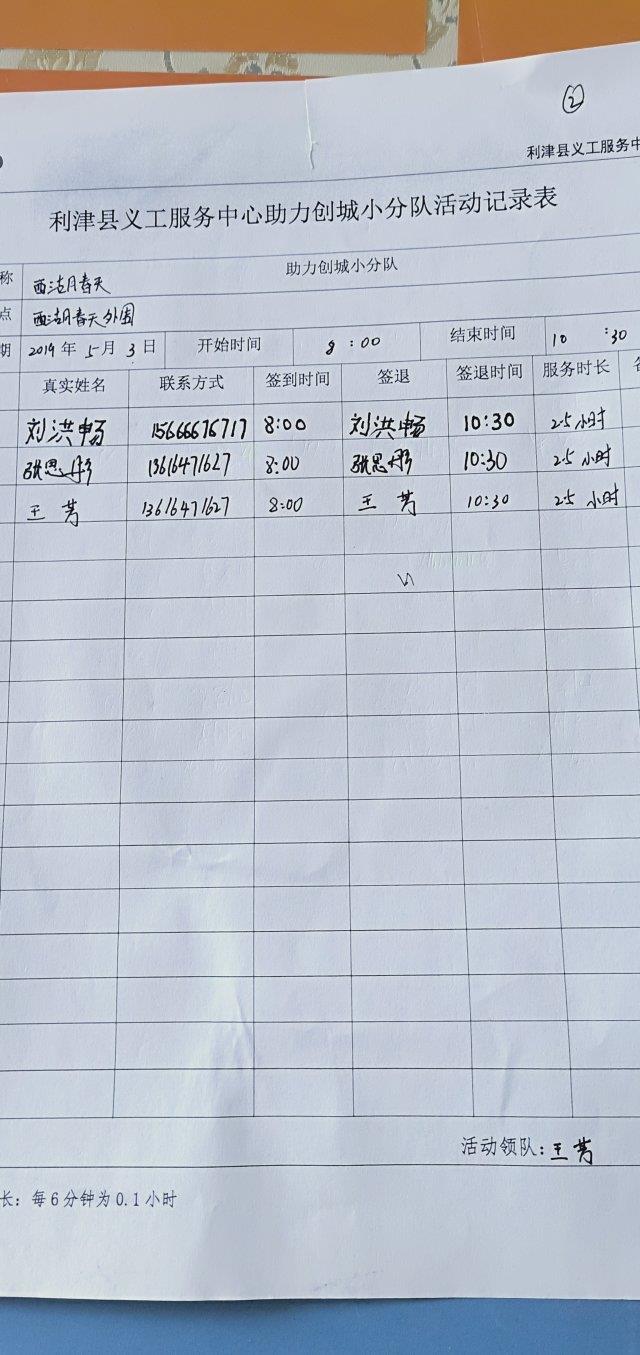 ②
利津县义工服务中
利津县义工服务中心助力创城小分队活动记录表
称 西湖春天 助力创城小分队
点 西湖春天外围
期 2019年5月3日 开始时间 8:00 结束时间 10:30
真实姓名 联系方式 签到时间 签退 签退时间 服务时长
刘洪畅 15666676717 8:00 刘洪畅 10:30 2.5小时
张思彤 13616471627 8:00 张思彤 10:30 2.5小时
王芳 13616471627 8:00 王芳 10:30 2.5小时
活动领队：王芳
长：每6分钟为0.1小时